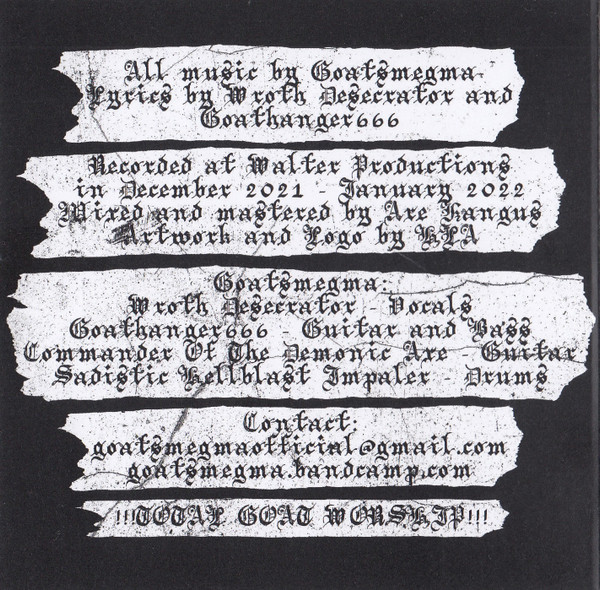 All music by Goatsmegma.
Lyrics by Wroth Desecrator and
Goathanger666
Recorded at Walter Productions
in December 2021 - January 2022
Mixed and mastered by Axe Hangus
Artwork and Logo by HLA
Goatsmegma:
Wroth Desecrator - Vocals
Goathanger666 - Guitar and Bass
Commander Of The Demonic Axe - Guitar
Sadistic Hellblast Impaler - Drums
Contact:
goatsmegmaofficial@gmail.com
goatsmegma.bandcamp.com
!!!TOTAL GOAT WORSHIP!!!